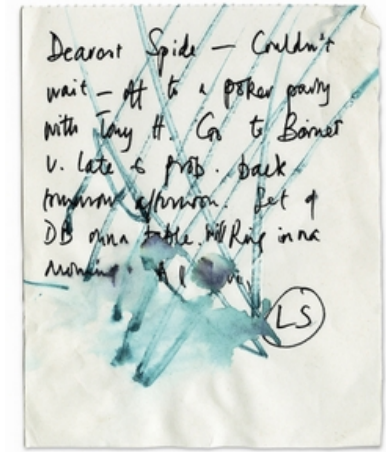 Dearest Spide – Couldn't
wait – off to a poker party
with Tony H. Go to Barnet
v. late & prob. back
tomorrow afternoon. Set of
DB on a table. Will Ring in na
morning.
LS